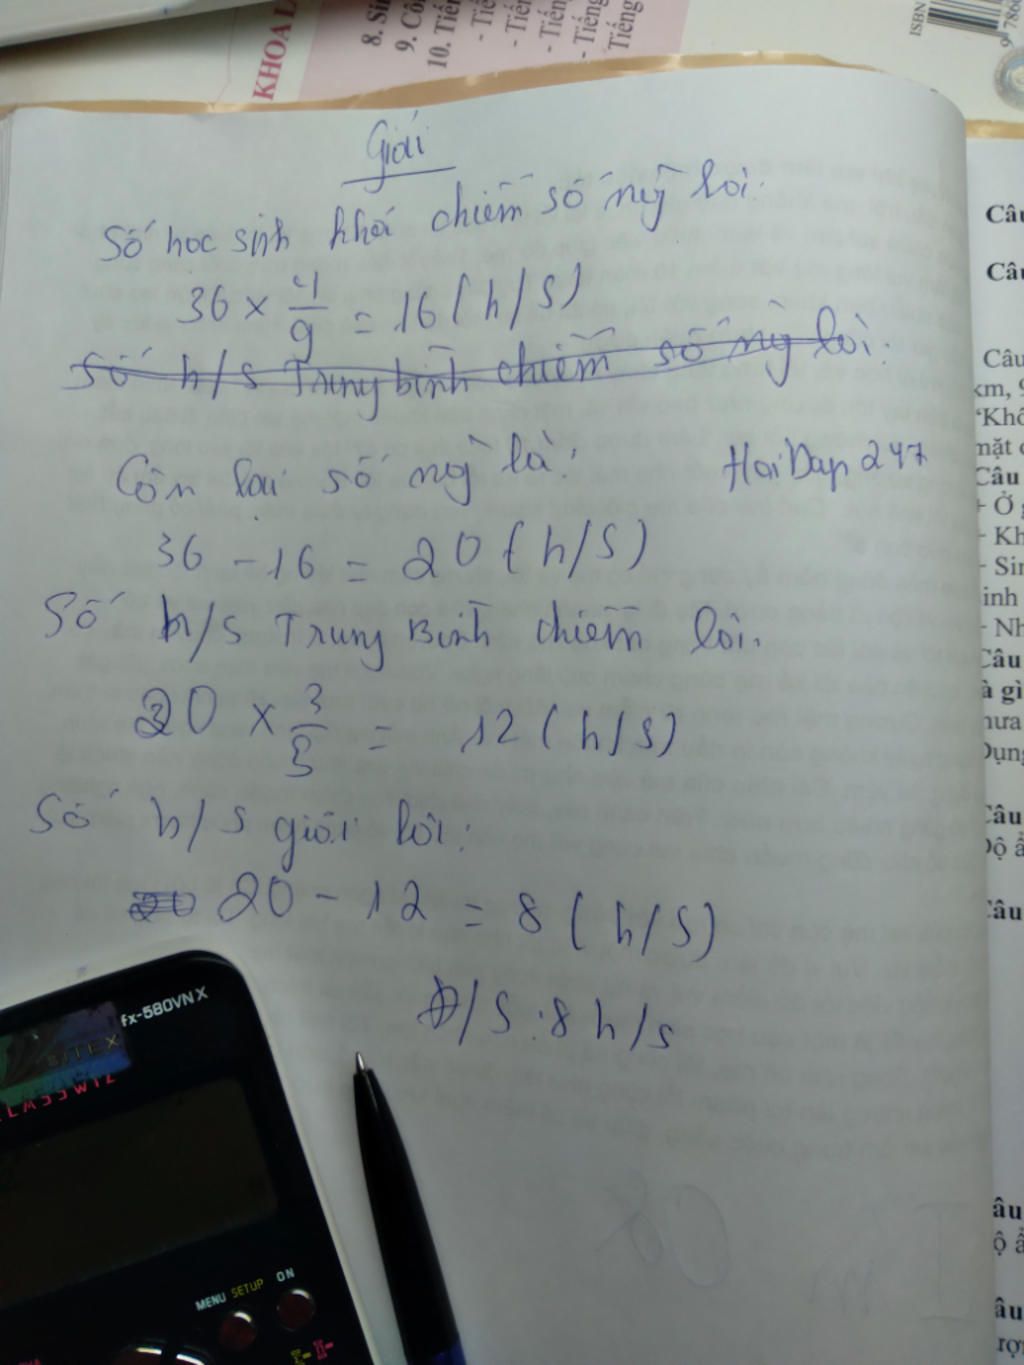 KHOA L
8. Si
9. Cô
10. Tiến
- Tiế
- Tiến
- Tiến
- Tiếng
Tiếng
ISBN
9 786
Giải
Số học sinh khá chiếm số
36 × 4/9 = 16 (h/s)
Số h/s Trung bình chiếm số
Còn lại số là:
HoiDap247
36 - 16 = 20 (h/s)
Số h/s Trung Bình chiếm
20 × 3/5 = 12 (h/s)
Số h/s giỏi
20 - 12 = 8 (h/s)
Đ/S: 8 h/s
fx-580VN X
BITEX
CLASSWIZ
MENU SETUP ON
Câu
Câu
Câu
km, 9
"Khô
mặt
Câu
+ Ở
- Kh
- Sin
inh
- Nh
Câu
à gì
hưa
Dụng
Câu
Độ ẩ
Câu
âu
ộ ẩ
âu
rợ